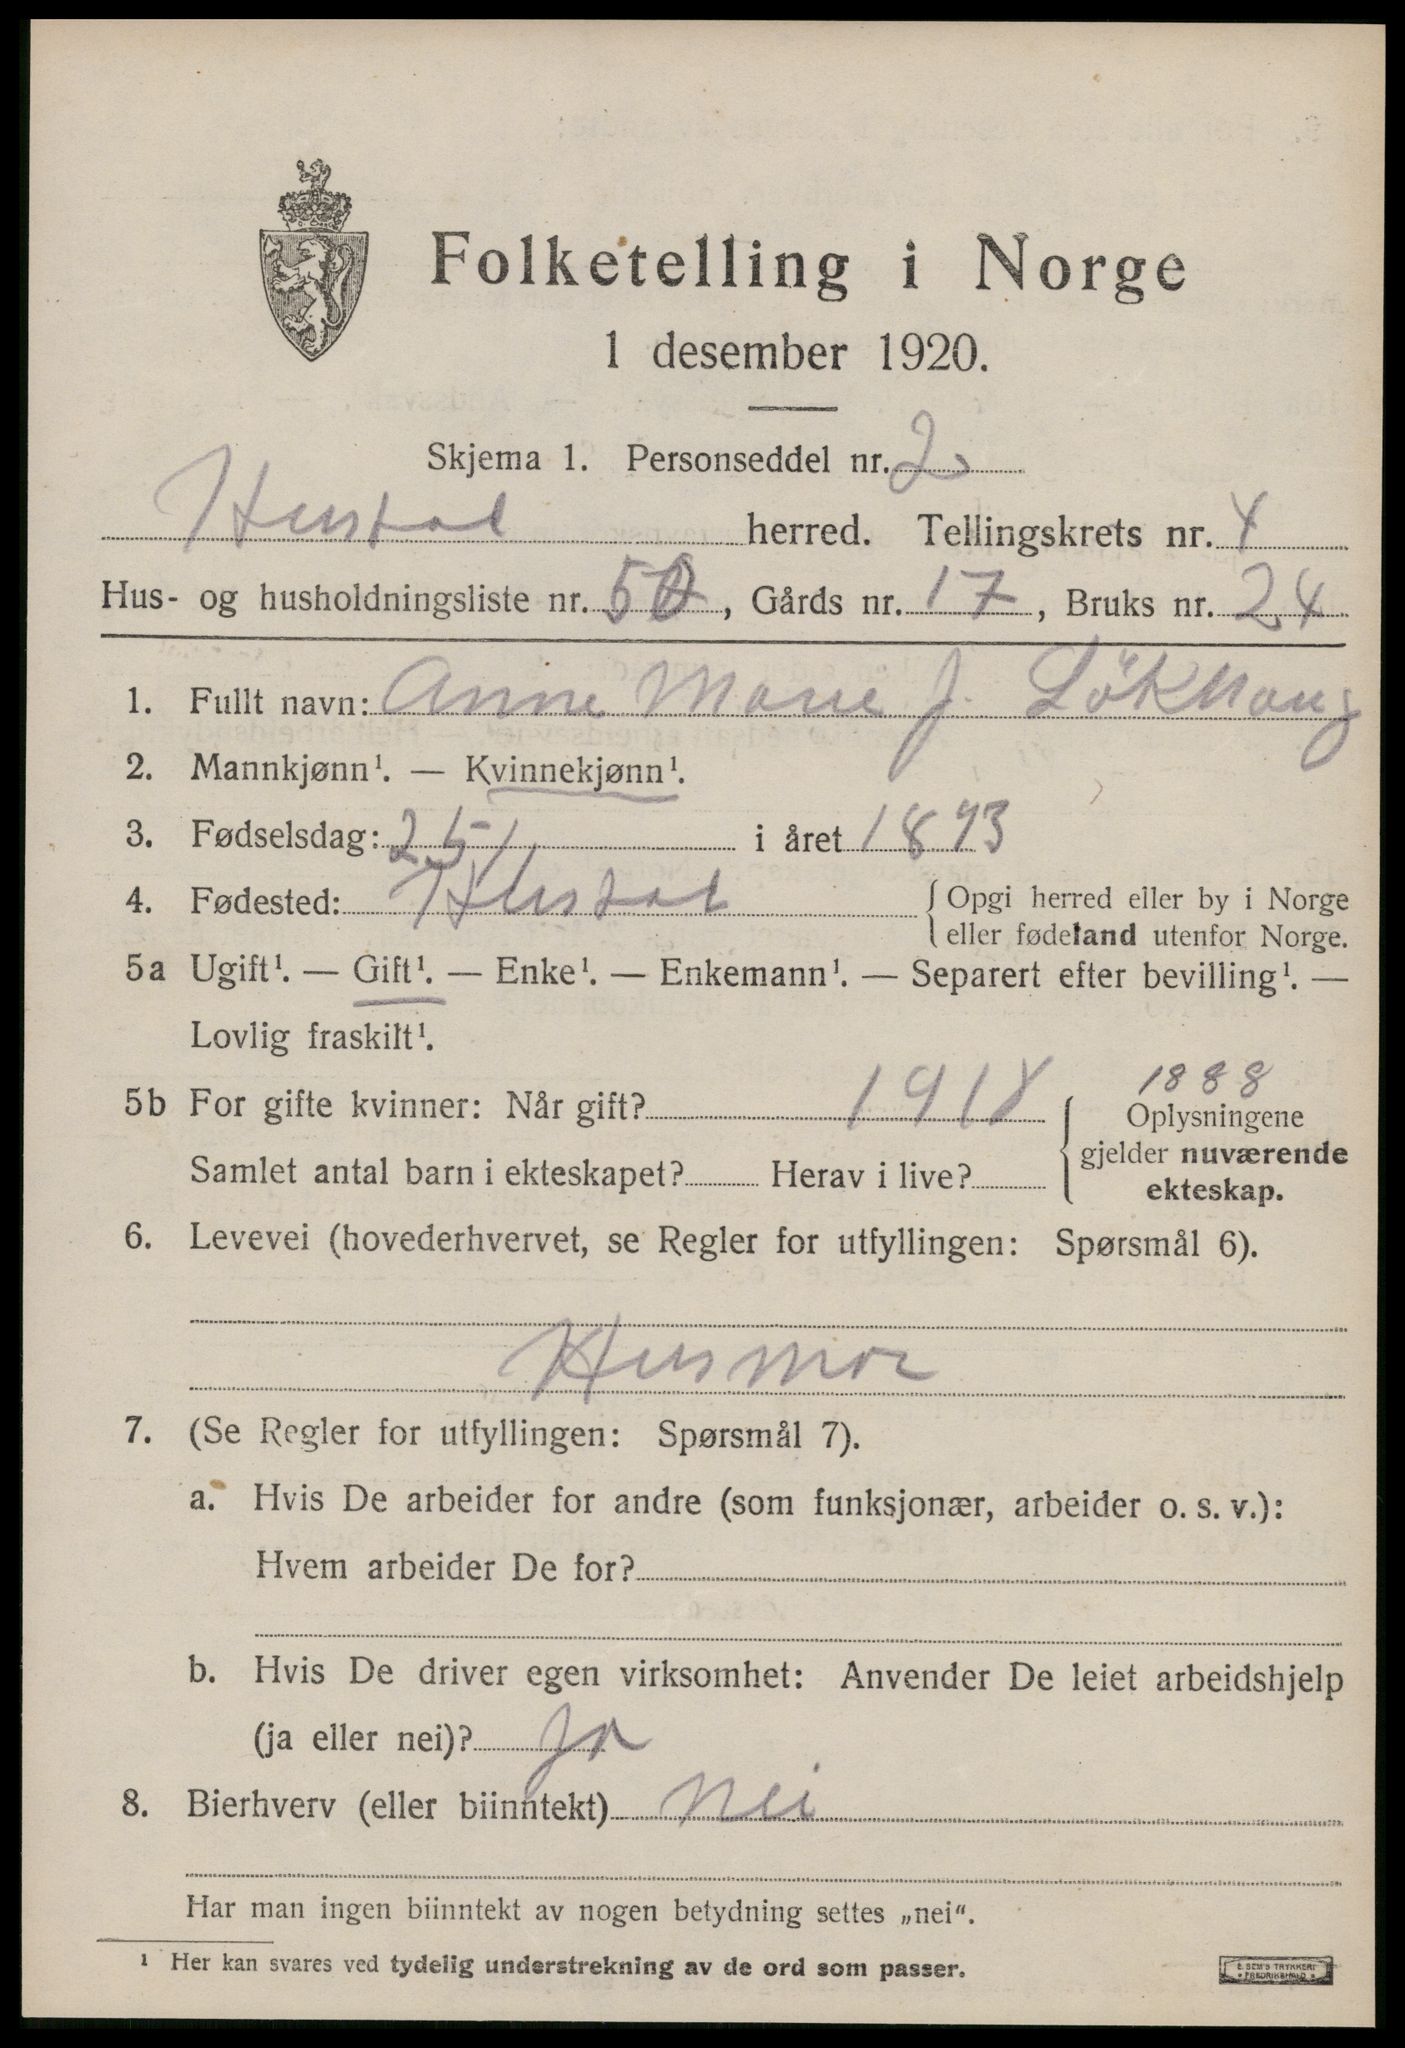 Folketelling i Norge
1 desember 1920.
Skjema 1. Personseddel nr. 2
Hustad herred. Tellingskrets nr. 4
Hus- og husholdningsliste nr. 50, Gårds nr. 17, Bruks nr. 24
1. Fullt navn: Anne Marie J. Lökhaug
2. Mannkjønn¹. — Kvinnekjønn¹.
3. Fødselsdag: 25/ i året 1893
4. Fødested: Hustad { Opgi herred eller by i Norge
eller fødeland utenfor Norge.
5a Ugift¹. — Gift¹. — Enke¹. — Enkemann¹. — Separert efter bevilling¹. —
Lovlig fraskilt¹.
1888
5b For gifte kvinner: Når gift? 1918 { Oplysningene
gjelder nuværende
Samlet antal barn i ekteskapet? Herav i live?
ekteskap.
6. Levevei (hovederhvervet, se Regler for utfyllingen: Spørsmål 6).
Husmor
7. (Se Regler for utfyllingen: Spørsmål 7).
a. Hvis De arbeider for andre (som funksjonær, arbeider o. s. v.):
Hvem arbeider De for?
b. Hvis De driver egen virksomhet: Anvender De leiet arbeidshjelp
(ja eller nei)? Ja
8. Bierhverv (eller biinntekt) Nei
Har man ingen biinntekt av nogen betydning settes „nei“.
¹ Her kan svares ved tydelig understrekning av de ord som passer.
E. SEM'S TRYKKERI
FREDRIKSHALD